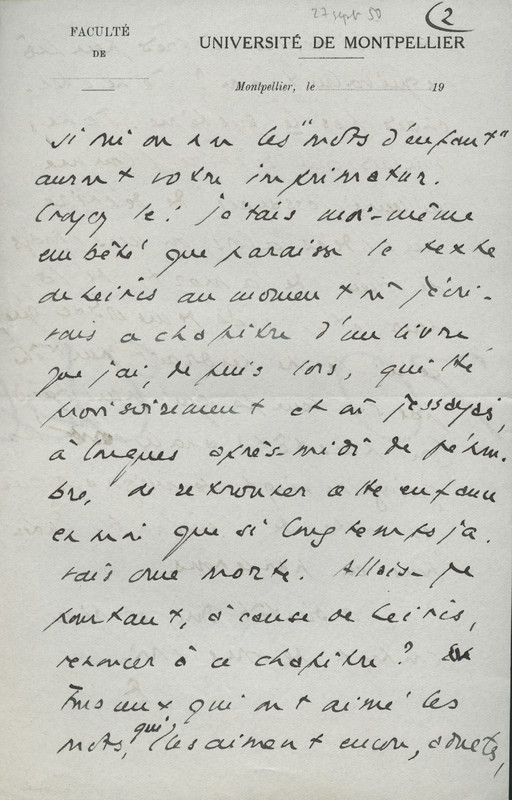 27 sept 50
2
FACULTÉ
DE
UNIVERSITÉ DE MONTPELLIER
Montpellier, le 19
si ni on les "mots d'enfant"
auront votre imprimatur.
Croyez le! j'étais moi-même
embêté que paraisse le texte
de Leiris au moment où j'écri-
vais ce chapitre d'un livre
que j'ai, depuis lors, quitté
provisoirement et où j'essayais,
à longues après-midi de pénom-
bre, de retrouver cette enfance
en moi que si longtemps j'a-
vais crue morte. Allais-je
pourtant, à cause de Leiris,
renoncer à ce chapitre?
Tous ceux qui ont aimé les
mots, qui les aiment encore, adultes,